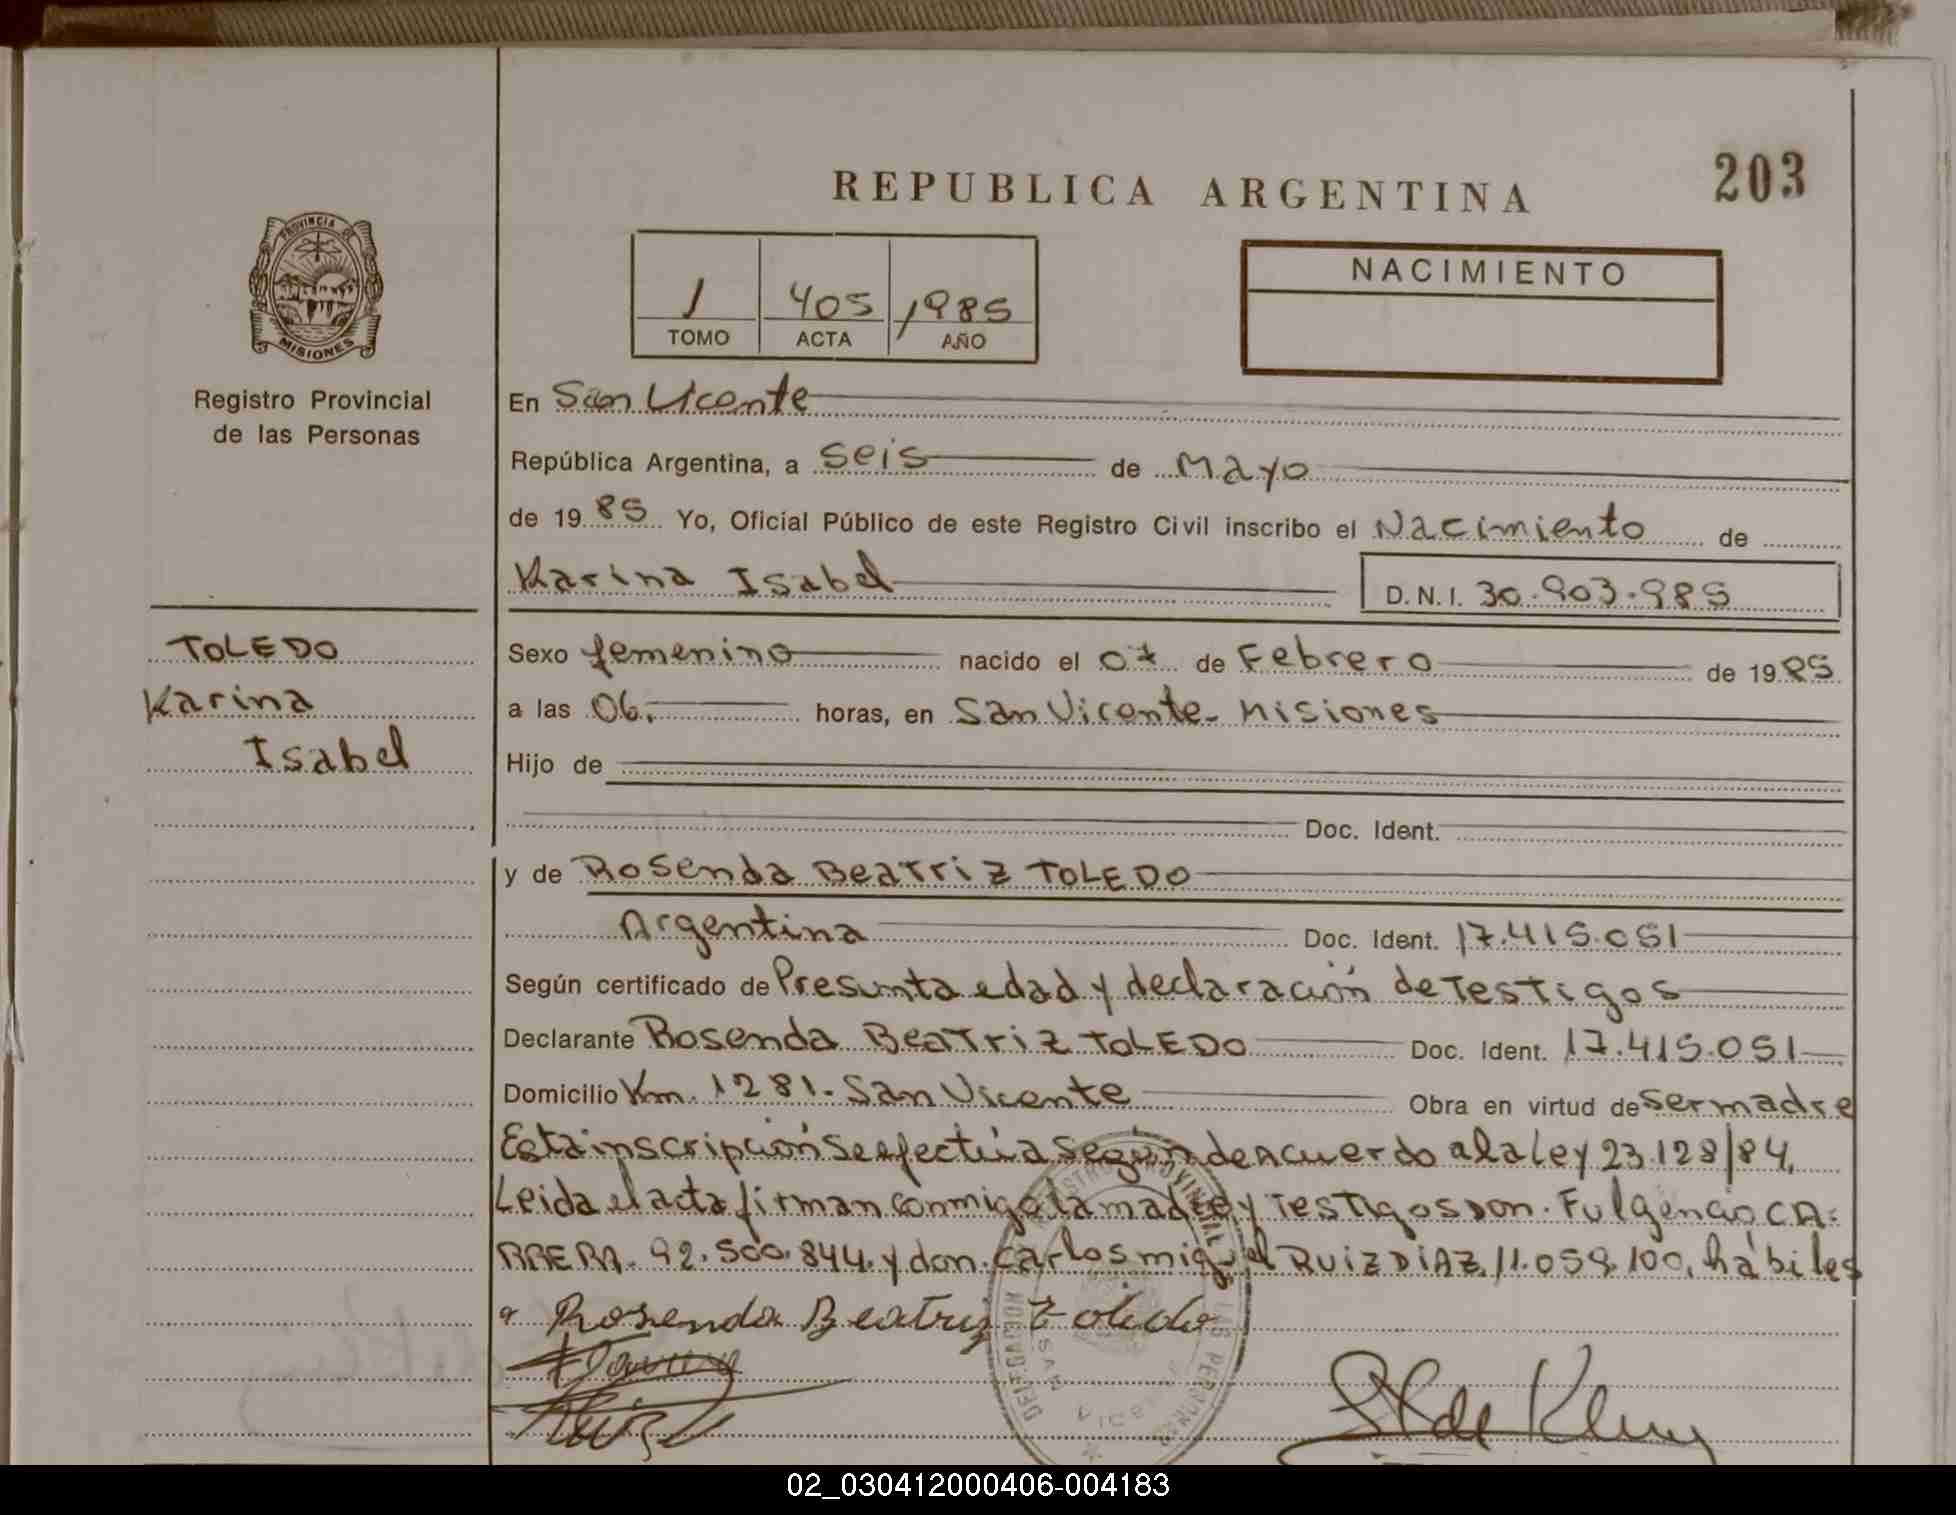 203
REPUBLICA ARGENTINA
PROVINCIA DE
MISIONES
Registro Provincial
de las Personas
1 405 1985
TOMO ACTA AÑO
NACIMIENTO
En San Vicente
República Argentina, a Seis de Mayo
de 1985 Yo, Oficial Público de este Registro Civil inscribo el Nacimiento de
Karina Isabel D.N.I. 30.903.985
TOLEDO
Karina
Isabel
Sexo femenino nacido el 07 de Febrero de 1985
a las 06. horas, en San Vicente - Misiones
Hijo de
Doc. Ident.
y de Rosenda Beatriz TOLEDO
Argentina Doc. Ident. 17.415.051
Según certificado de Presunta edad y declaración de Testigos
Declarante Rosenda Beatriz TOLEDO Doc. Ident. 17.415.051
Domicilio Km. 1281. San Vicente Obra en virtud de ser madre
Esta inscripción se efectúa según de Acuerdo a la Ley 23.128/84.
Leida el acta firman conmigo la madre y Testigos Don. Fulgencio CA-
RRERA. 92.500.844. y don. Carlos miguel RUIZ DIAZ, 11.059.100, hábiles
Rosenda Beatriz Toledo
02_030412000406-004183